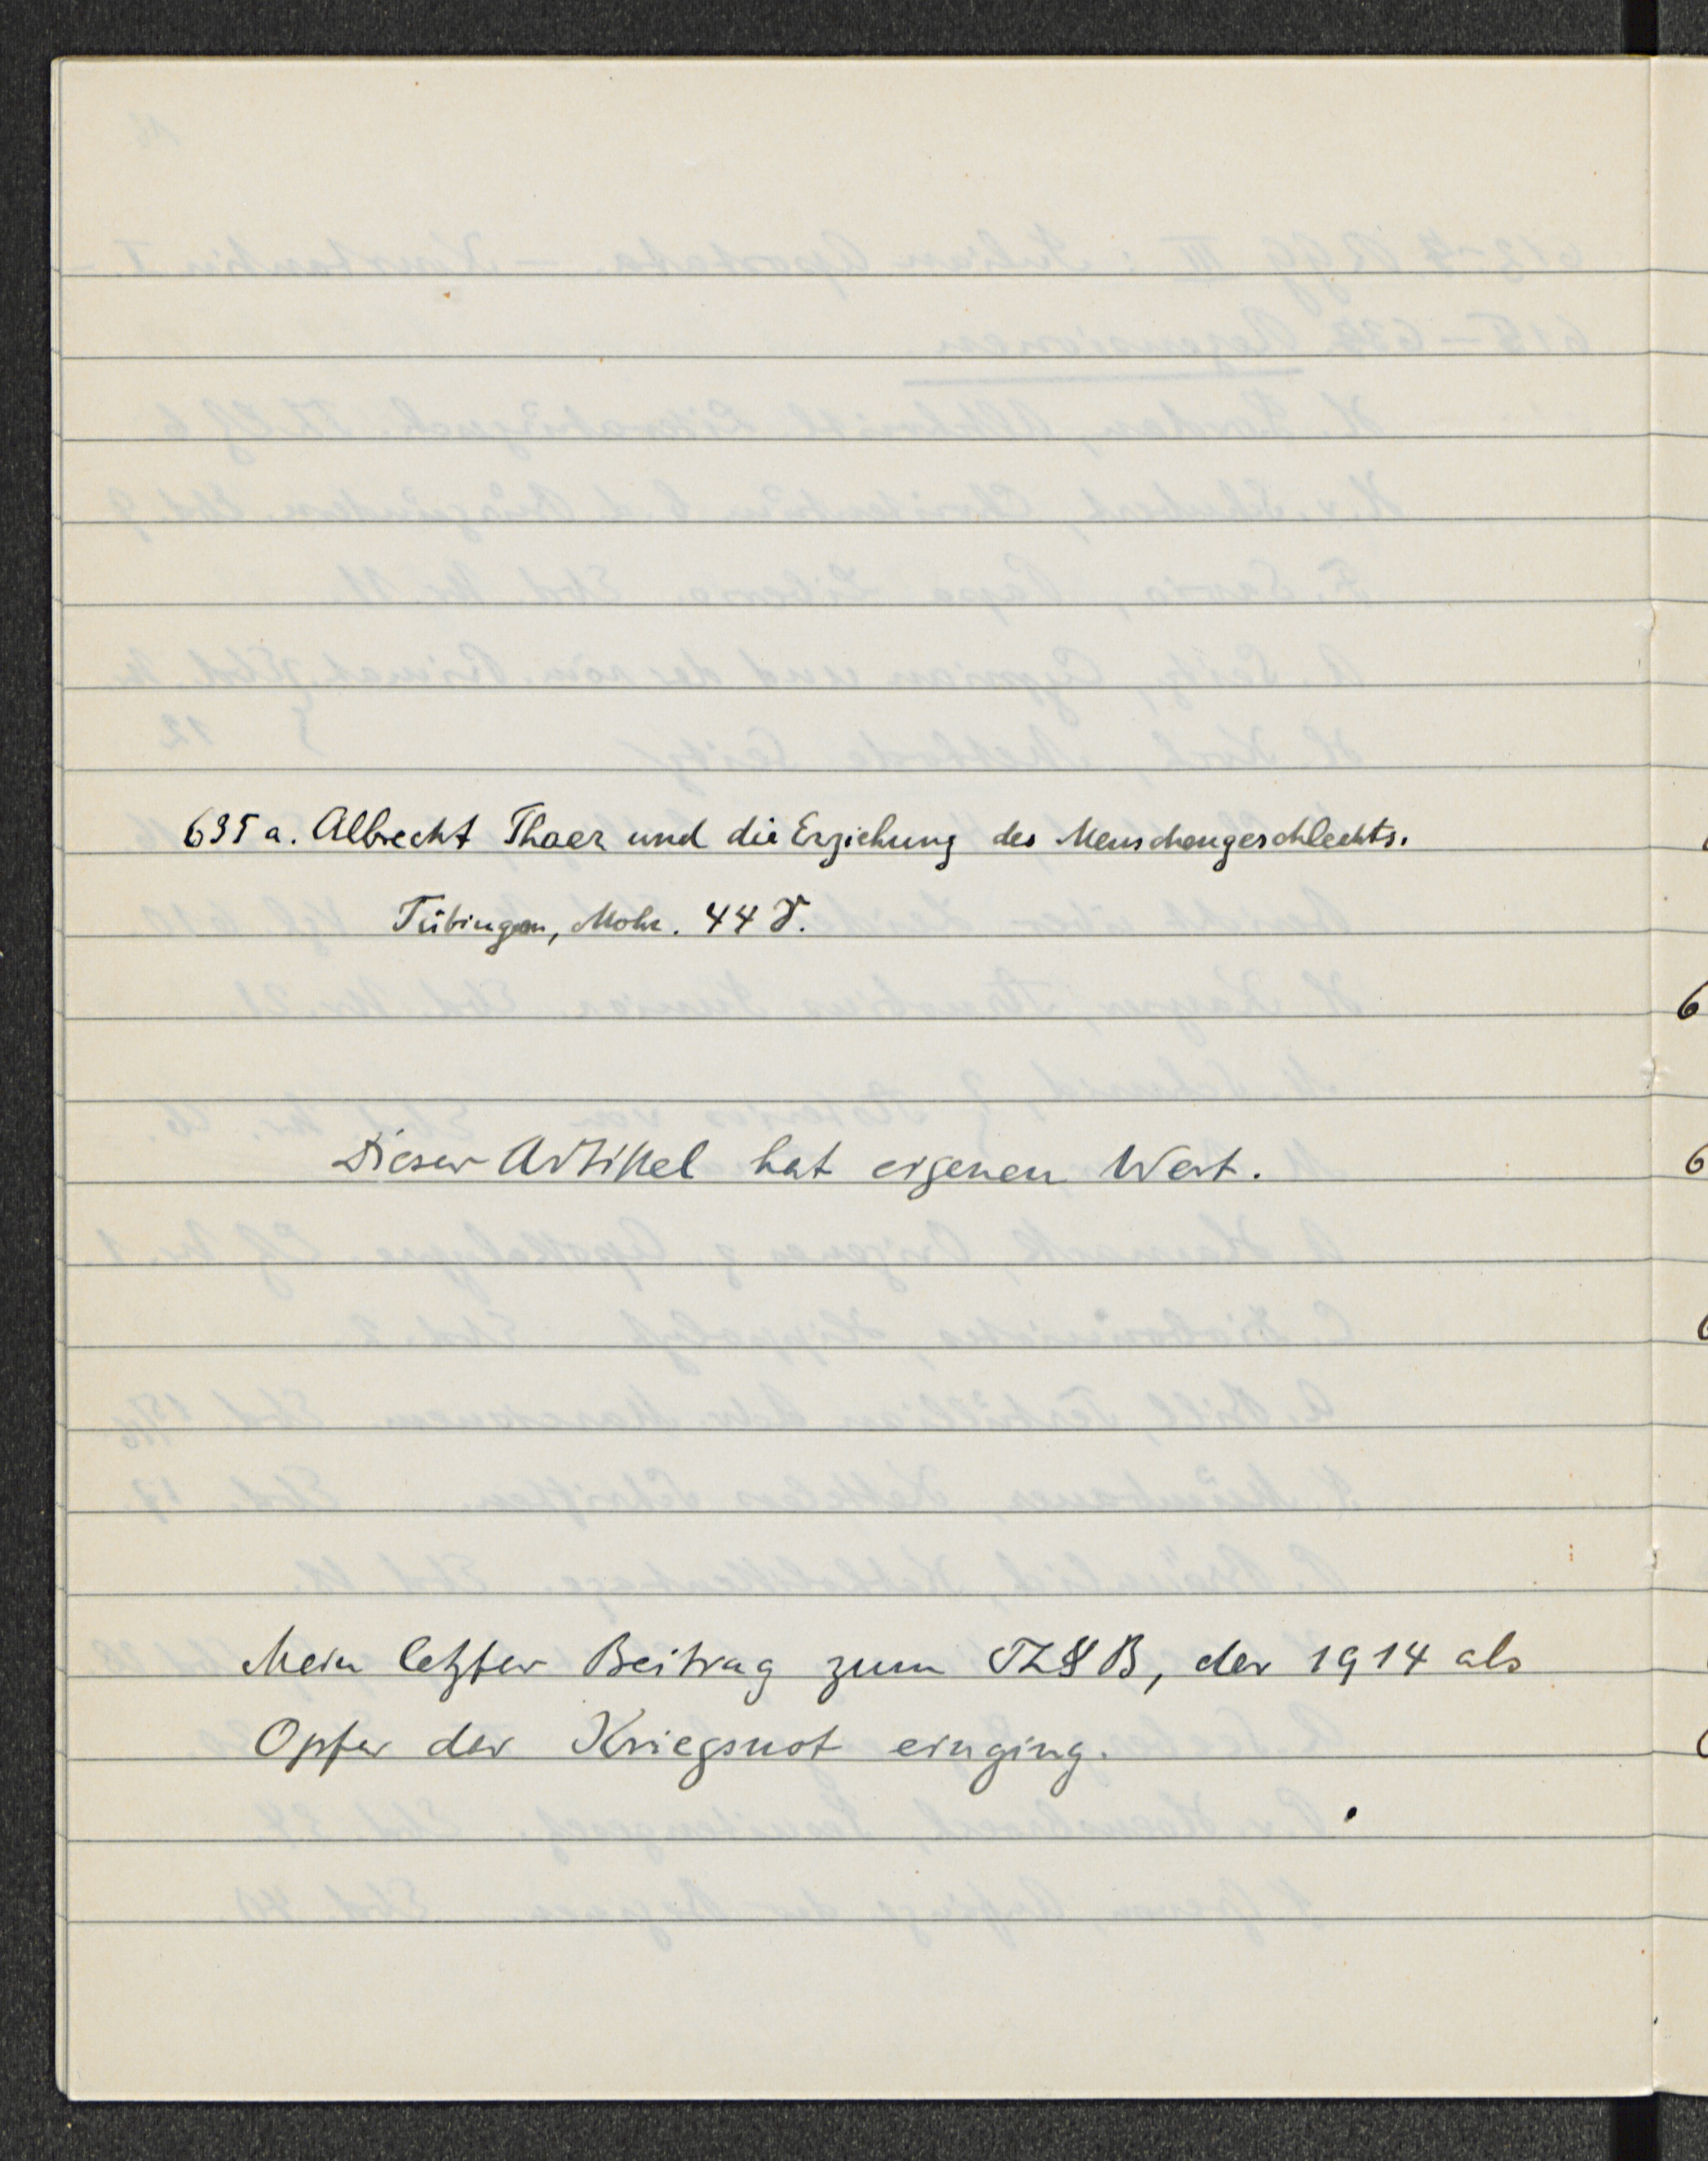 635 a. Albrecht Thaer und die Erziehung des Menschengeschlechts.
Tübingen, Mohr. 44 S.
Dieser Artikel hat eigenen Wert.
Mein letzter Beitrag zum ThJB, der 1914 als
Opfer der Kriegsnot einging.